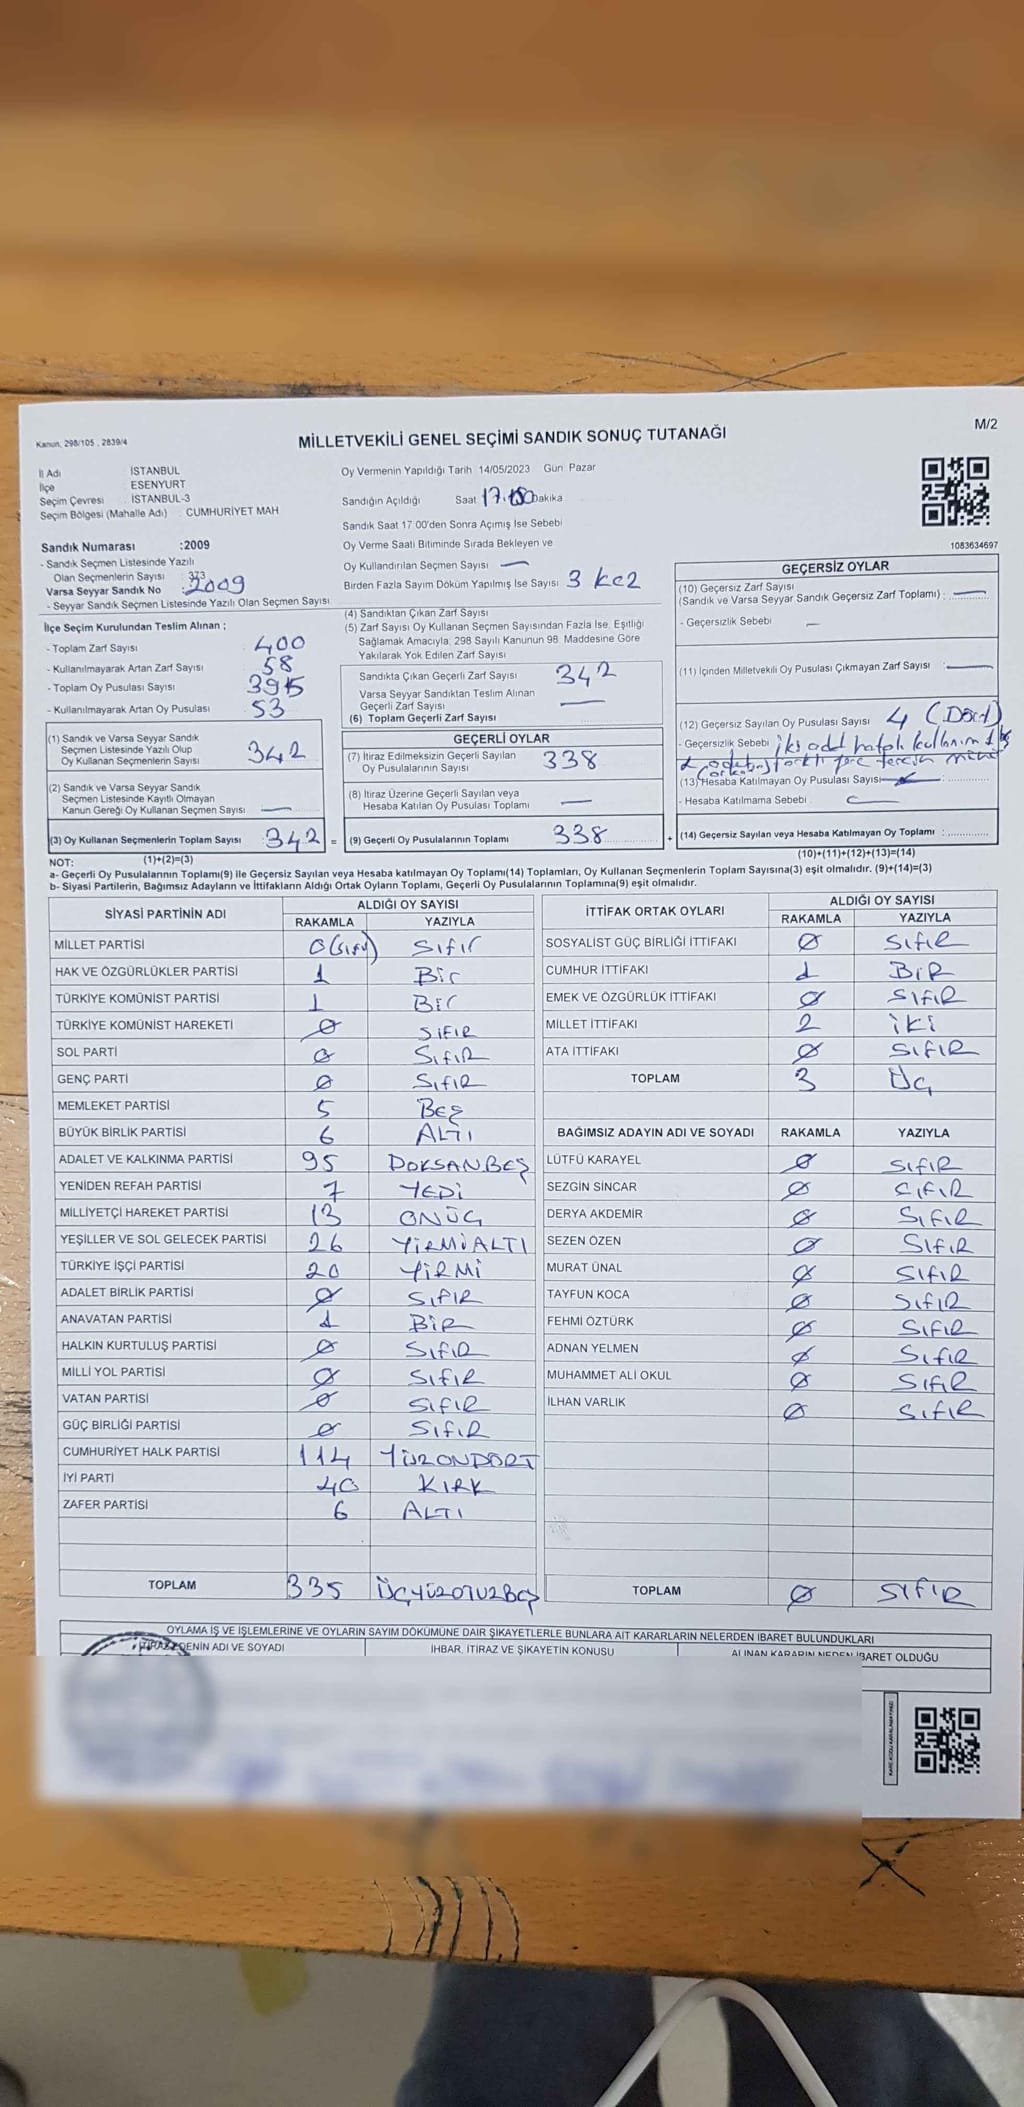 Kanun, 298/105 , 2839/4
MİLLETVEKİLİ GENEL SEÇİMİ SANDIK SONUÇ TUTANAĞI
M/2
İl Adı İSTANBUL
İlçe ESENYURT
Seçim Çevresi : İSTANBUL-3
Seçim Bölgesi (Mahalle Adı) : CUMHURİYET MAH
Sandık Numarası :2009
- Sandık Seçmen Listesinde Yazılı
Olan Seçmenlerin Sayısı : 373
Varsa Seyyar Sandık No 2009
- Seyyar Sandık Seçmen Listesinde Yazılı Olan Seçmen Sayısı
İlçe Seçim Kurulundan Teslim Alınan ;
- Toplam Zarf Sayısı 400
- Kullanılmayarak Artan Zarf Sayısı 58
- Toplam Oy Pusulası Sayısı 395
- Kullanılmayarak Artan Oy Pusulası 53
(1) Sandık ve Varsa Seyyar Sandık
Seçmen Listesinde Yazılı Olup
Oy Kullanan Seçmenlerin Sayısı 342
(2) Sandık ve Varsa Seyyar Sandık
Seçmen Listesinde Kayıtlı Olmayan
Kanun Gereği Oy Kullanan Seçmen Sayısı —
(3) Oy Kullanan Seçmenlerin Toplam Sayısı : 342 =
(1)+(2)=(3)
Oy Vermenin Yapıldığı Tarih 14/05/2023 Gün Pazar
Sandığın Açıldığı Saat 17. Dakika
Sandık Saat 17 00'den Sonra Açımış İse Sebebi
Oy Verme Saati Bitiminde Sırada Bekleyen ve
Oy Kullandırılan Seçmen Sayısı —
Birden Fazla Sayım Döküm Yapılmış İse Sayısı 3 kez
(4) Sandıktan Çıkan Zarf Sayısı
(5) Zarf Sayısı Oy Kullanan Seçmen Sayısından Fazla İse, Eşitliği
Sağlamak Amacıyla, 298 Sayılı Kanunun 98. Maddesine Göre
Yakılarak Yok Edilen Zarf Sayısı
Sandıkta Çıkan Geçerli Zarf Sayısı 342
Varsa Seyyar Sandıktan Teslim Alınan
Geçerli Zarf Sayısı —
(6) Toplam Geçerli Zarf Sayısı
GEÇERLİ OYLAR
(7) İtiraz Edilmeksizin Geçerli Sayılan
Oy Pusulalarının Sayısı 338
(8) İtiraz Üzerine Geçerli Sayılan veya
Hesaba Katılan Oy Pusulası Toplamı —
(9) Geçerli Oy Pusulalarının Toplamı 338 +
1083634697
GEÇERSİZ OYLAR
(10) Geçersiz Zarf Sayısı
(Sandık ve Varsa Seyyar Sandık Geçersiz Zarf Toplamı) : —
- Geçersizlik Sebebi —
(11) İçinden Milletvekili Oy Pusulası Çıkmayan Zarf Sayısı : —
(12) Geçersiz Sayılan Oy Pusulası Sayısı 4 (Dört)
- Geçersizlik Sebebi iki adet hatalı kullanım
(13) Hesaba Katılmayan Oy Pusulası Sayısı
- Hesaba Katılmama Sebebi : —
(14) Geçersiz Sayılan veya Hesaba Katılmayan Oy Toplamı :
(10)+(11)+(12)+(13)=(14)
NOT:
a- Geçerli Oy Pusulalarının Toplamı(9) ile Geçersiz Sayılan veya Hesaba katılmayan Oy Toplamı(14) Toplamları, Oy Kullanan Seçmenlerin Toplam Sayısına(3) eşit olmalıdır. (9)+(14)=(3)
b- Siyasi Partilerin, Bağımsız Adayların ve İttifakların Aldığı Ortak Oyların Toplamı, Geçerli Oy Pusulalarının Toplamına(9) eşit olmalıdır.
SİYASİ PARTİNİN ADI ALDIĞI OY SAYISI
RAKAMLA YAZIYLA
MİLLET PARTİSİ 0 (sıfır) Sıfır
HAK VE ÖZGÜRLÜKLER PARTİSİ 1 Bir
TÜRKİYE KOMÜNİST PARTİSİ 1 Bir
TÜRKİYE KOMÜNİST HAREKETİ 0 SIFIR
SOL PARTİ 0 SıfıR
GENÇ PARTİ 0 SıfıR
MEMLEKET PARTİSİ 5 BEŞ
BÜYÜK BİRLİK PARTİSİ 6 ALTI
ADALET VE KALKINMA PARTİSİ 95 DOKSANBEŞ
YENİDEN REFAH PARTİSİ 7 YEDİ
MİLLİYETÇİ HAREKET PARTİSİ 13 ONÜÇ
YEŞİLLER VE SOL GELECEK PARTİSİ 26 YİRMİALTI
TÜRKİYE İŞÇİ PARTİSİ 20 YİRMİ
ADALET BİRLİK PARTİSİ 0 SIFIR
ANAVATAN PARTİSİ 1 BİR
HALKIN KURTULUŞ PARTİSİ 0 SıfıR
MİLLİ YOL PARTİSİ 0 SıfıR
VATAN PARTİSİ 0 SıfıR
GÜÇ BİRLİĞİ PARTİSİ 0 SıfıR
CUMHURİYET HALK PARTİSİ 114 YÜZONDÖRT
İYİ PARTİ 40 KIRK
ZAFER PARTİSİ 6 ALTI
TOPLAM 335 ÜÇYÜZOTUZBEŞ
İTTİFAK ORTAK OYLARI ALDIĞI OY SAYISI
RAKAMLA YAZIYLA
SOSYALİST GÜÇ BİRLİĞİ İTTİFAKI 0 SıfıR
CUMHUR İTTİFAKI 1 BİR
EMEK VE ÖZGÜRLÜK İTTİFAKI 0 SıfıR
MİLLET İTTİFAKI 2 İKİ
ATA İTTİFAKI 0 SıfıR
TOPLAM 3 ÜÇ
BAĞIMSIZ ADAYIN ADI VE SOYADI RAKAMLA YAZIYLA
LÜTFÜ KARAYEL 0 SıfıR
SEZGİN SİNCAR 0 SıfıR
DERYA AKDEMİR 0 SıfıR
SEZEN ÖZEN 0 SıfıR
MURAT ÜNAL 0 SıfıR
TAYFUN KOCA 0 SıfıR
FEHMİ ÖZTÜRK 0 SıfıR
ADNAN YELMEN 0 SıfıR
MUHAMMET ALİ OKUL 0 SıfıR
İLHAN VARLIK 0 SıfıR
TOPLAM 0 SıfıR
OYLAMA İŞ VE İŞLEMLERİNE VE OYLARIN SAYIM DÖKÜMÜNE DAİR ŞİKAYETLERLE BUNLARA AİT KARARLARIN NELERDEN İBARET BULUNDUKLARI
İTİRAZ EDENİN ADI VE SOYADI İHBAR, İTİRAZ VE ŞİKAYETİN KONUSU ALINAN KARARIN NEDEN İBARET OLDUĞU